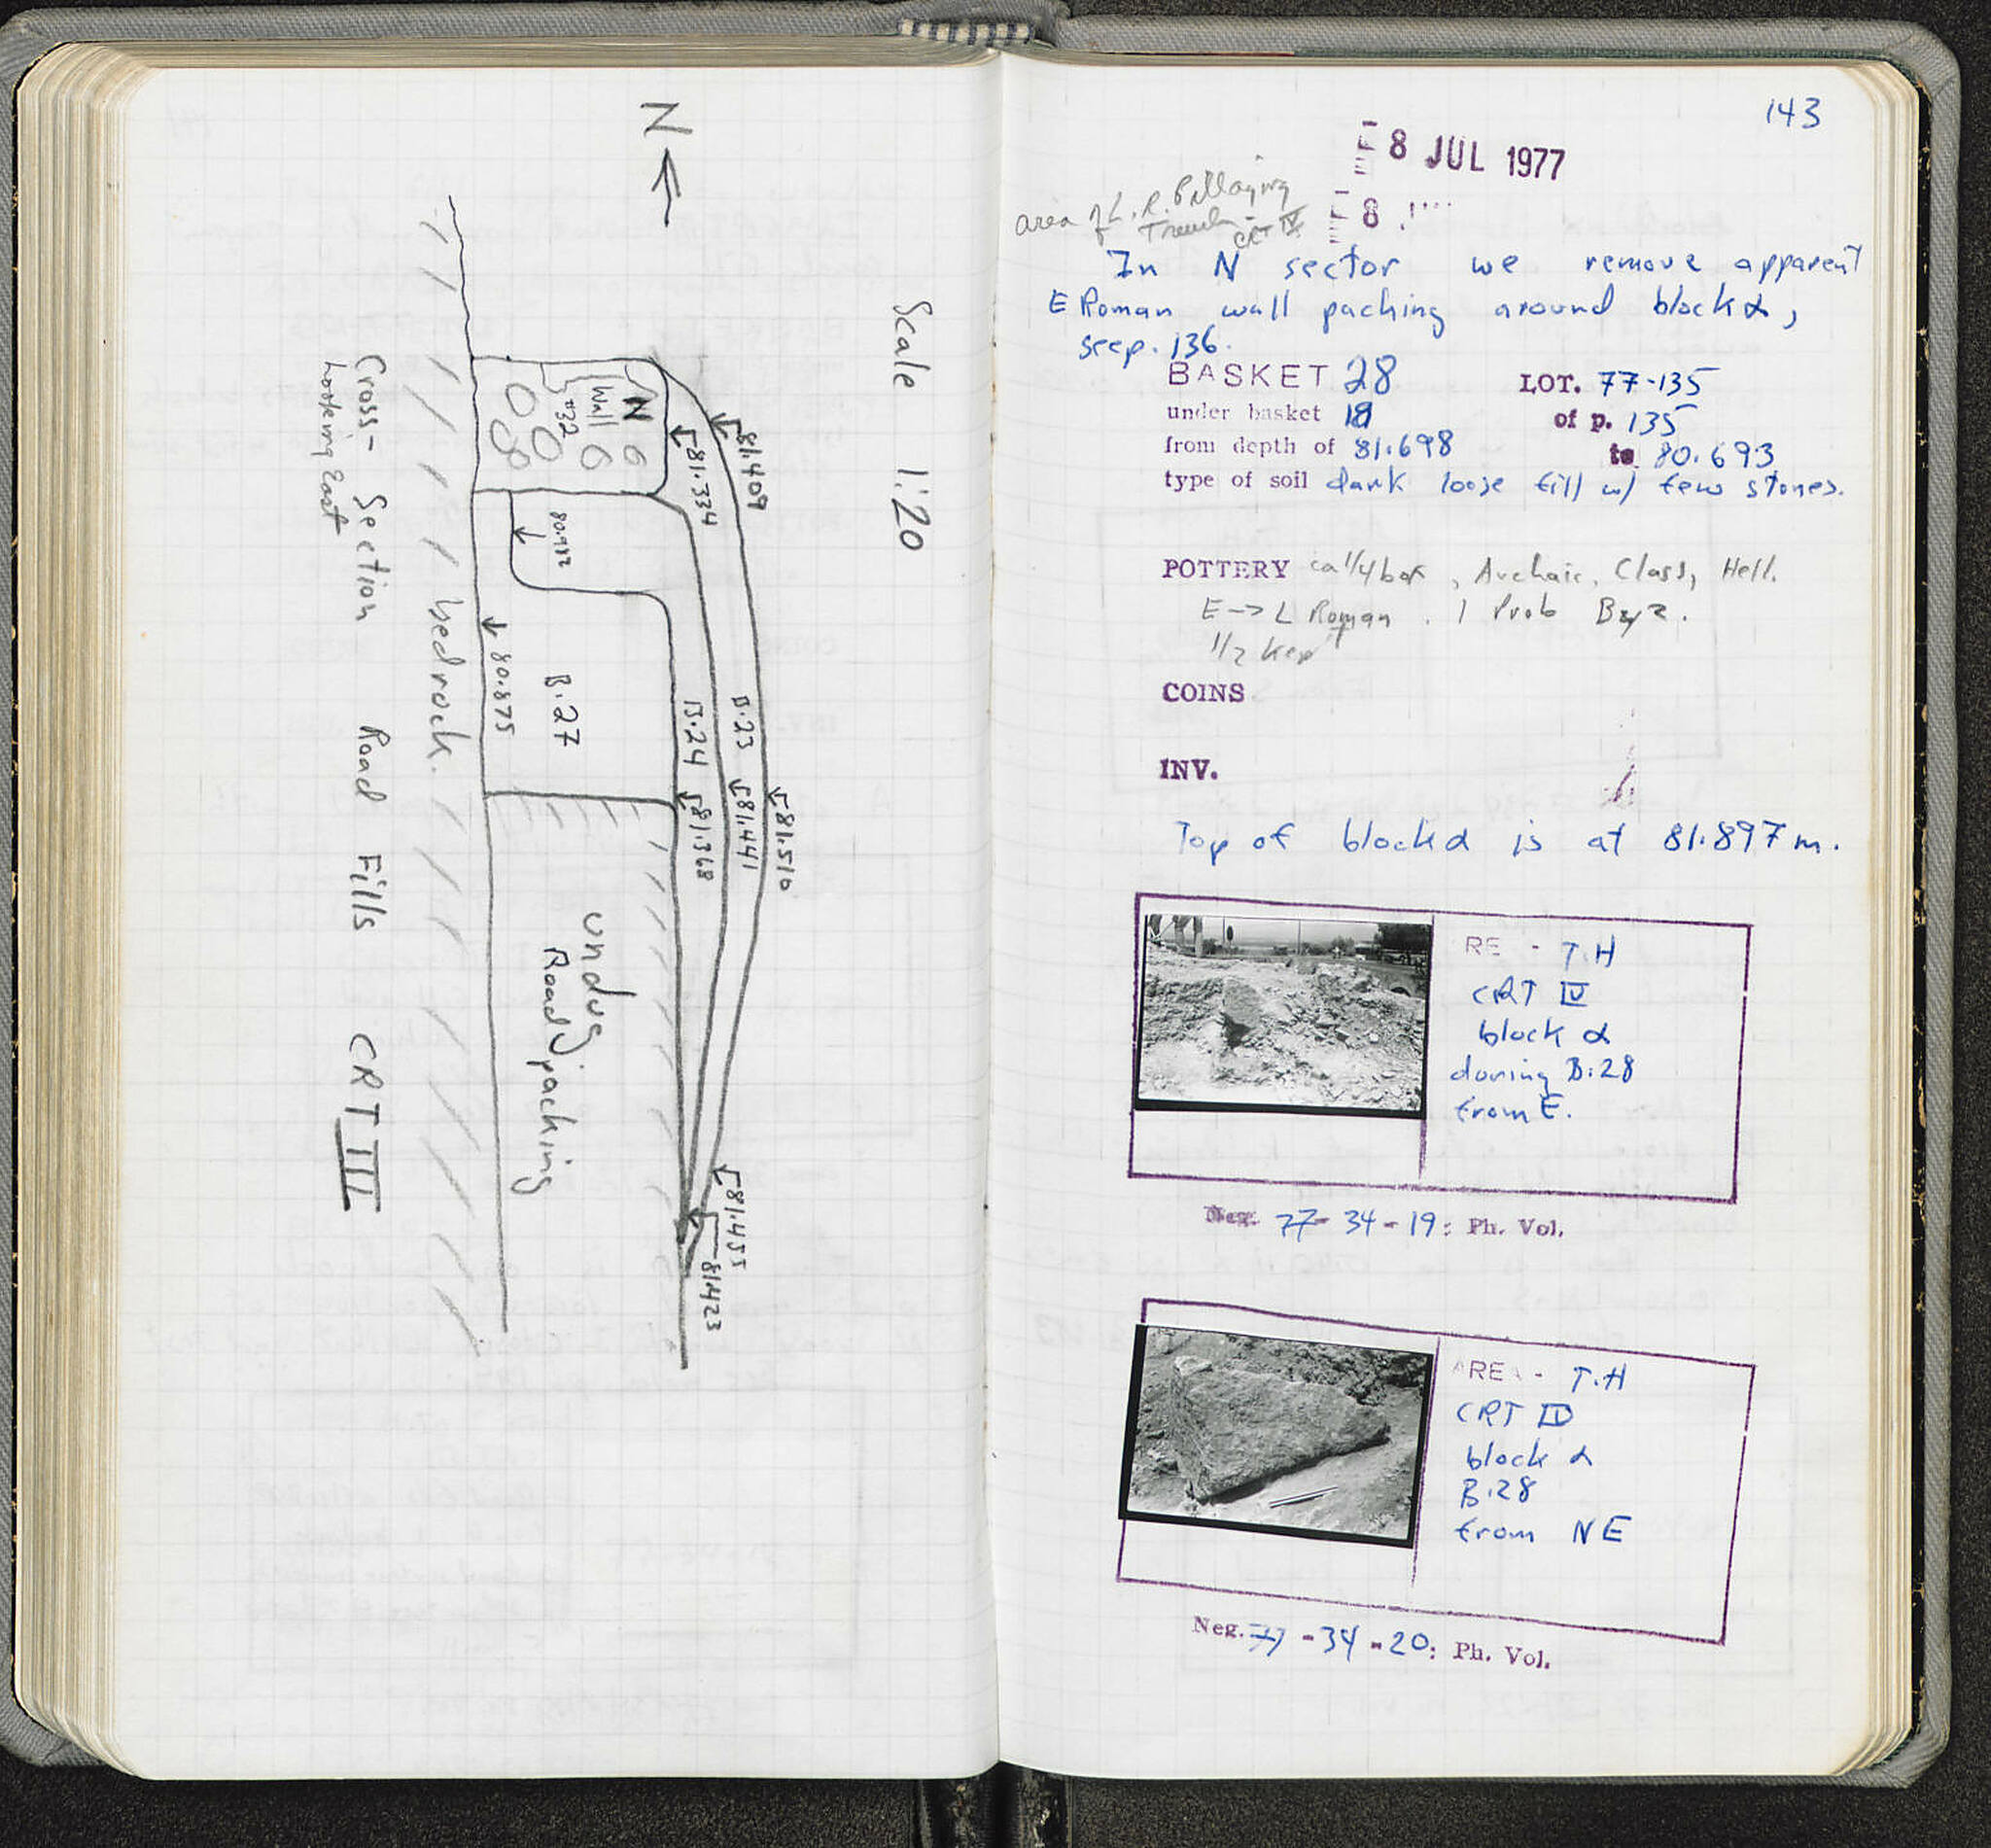 N
Scale 1:20
81.409
81.334
N
Wall
#32
80.912
81.510
B.23
81.441
B.24
81.368
B.27
80.875
81.455
81.423
undug
Road packing
bedrock.
Cross-Section Road Fills CRT III
Looking East
143
8 JUL 1977
8
area of L.R. Pillaging
Trench - CRT IV
In N sector we remove apparent
E Roman wall packing around block α,
see p. 136.
BASKET 28 LOT. 77-135
under basket 18 of p. 135
from depth of 81.698 to 80.693
type of soil dark loose fill w/ few stones.
POTTERY ca 1/4 box, Archaic, Class, Hell.
E→L Roman. 1 Prob Byz.
1/2 kept
COINS
INV.
Top of block α is at 81.897 m.
RE - T.H
CRT IV
block α
during B.28
from E.
Neg. 77-34-19: Ph. Vol.
AREA - T.H
CRT IV
block α
B.28
from NE
Neg. 77-34-20: Ph. Vol.